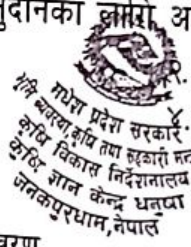 नुदानका लागि अ
१.
४.
मधेश प्रदेश सरकार
भूमि व्यवस्था, कृषि तथा सहकारी मन्
कृषि विकास निर्देशनालय
कृषि ज्ञान केन्द्र धनुषा
जनकपुरधाम, नेपाल
वरण